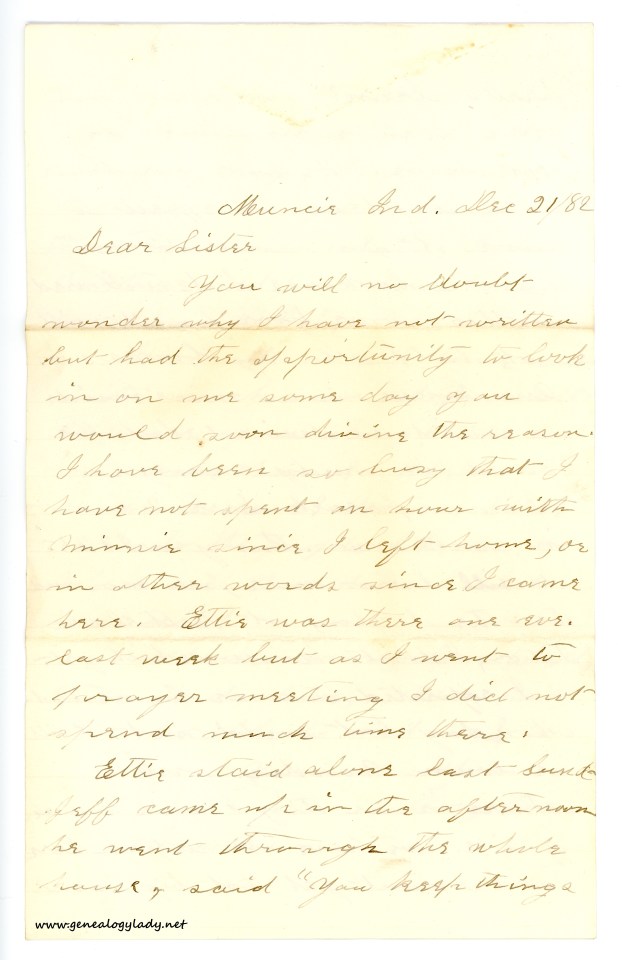 Muncie Ind. Dec 21/82
Dear Sister
You will no doubt
wonder why I have not written
but had the opportunity to look
in on me some day you
would soon divine the reason.
I have been so busy that I
have not spent an hour with
Minnie since I left home, or
in other words since I came
here. Ettie was there one eve.
last week but as I went to
prayer meeting I did not
spend much time there.
Ettie staid alone last Sund
Jeff came up in the afternoon
he went through the whole
house, said "You keep things
www.genealogylady.net